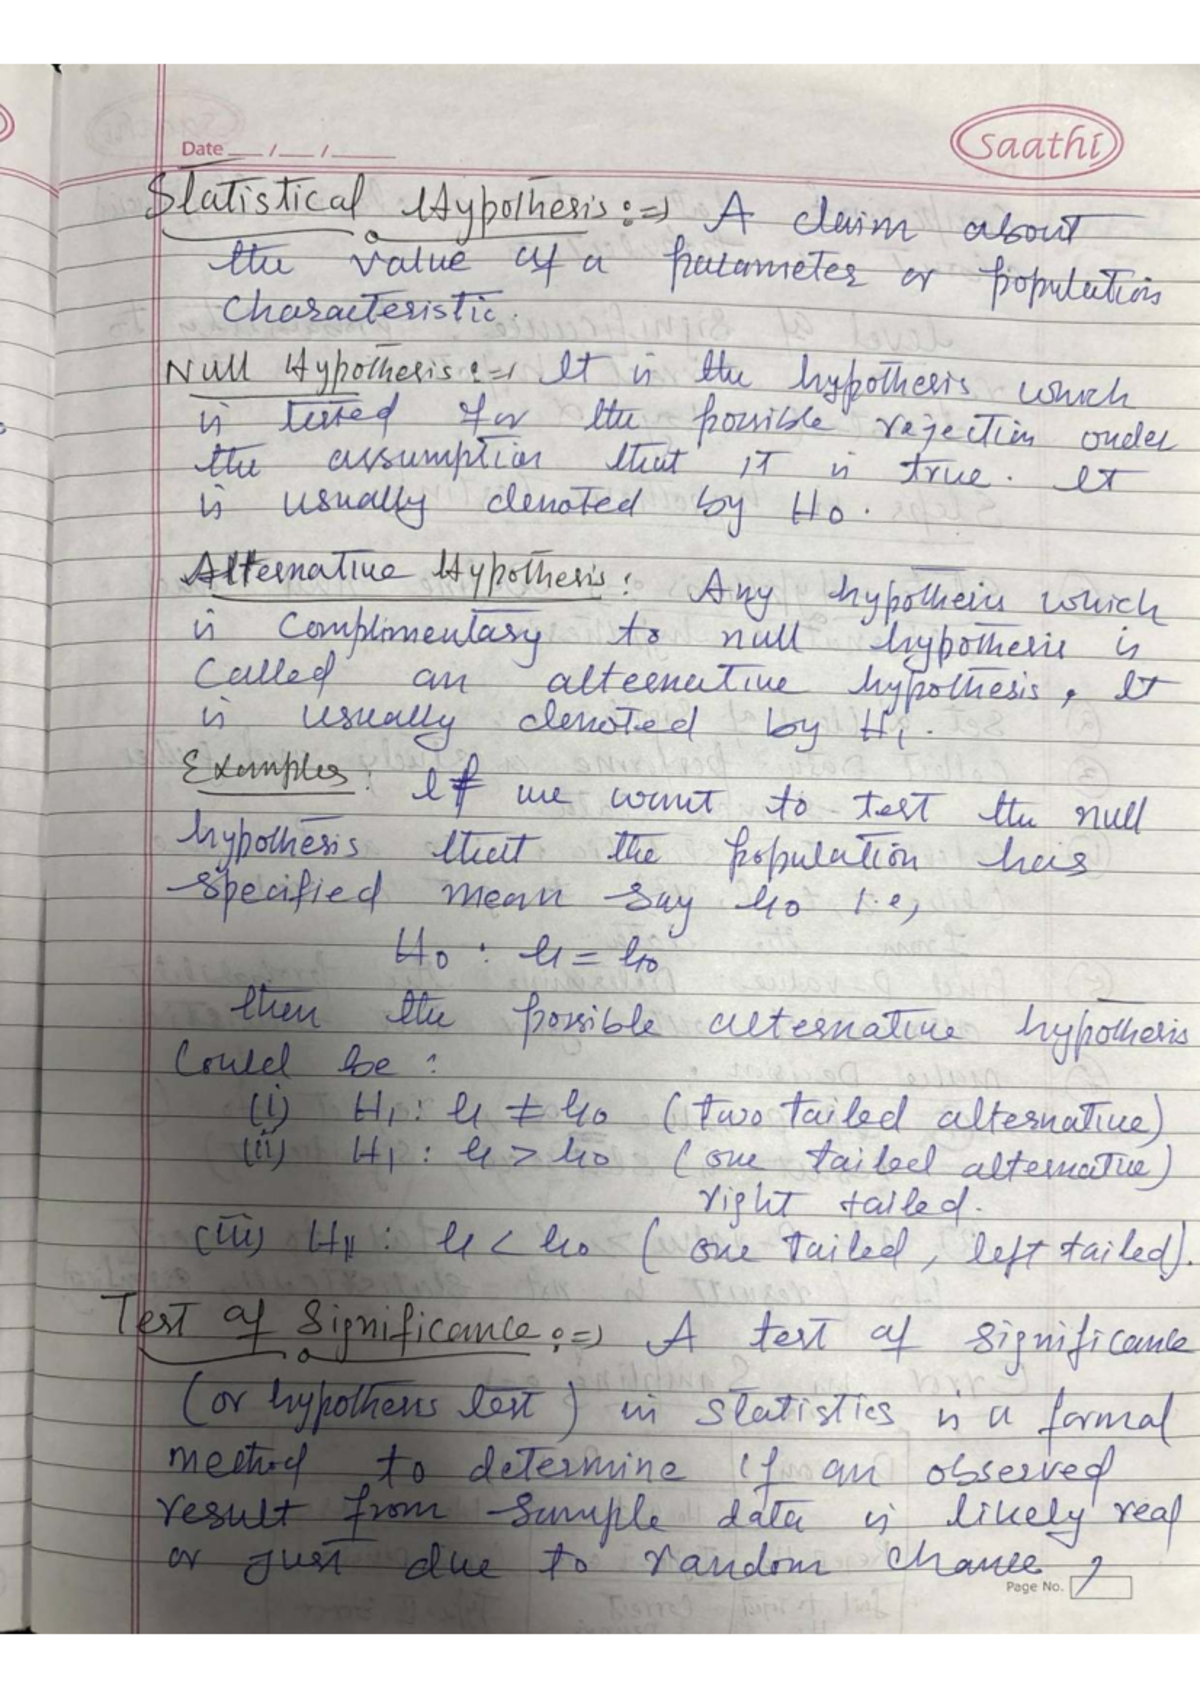 Date __/__/____
Saathi
Statistical Hypothesis :=> A claim about
the value of a parameter or population
characteristic.
Null Hypothesis :=> It is the hypothesis which
is tested for the possible rejection under
the assumption that it is true. It
is usually denoted by H0.
Alternative Hypothesis : Any hypothesis which
is complimentary to null hypothesis is
called an alternative hypothesis, It
is usually denoted by H1.
Examples : If we want to test the null
hypothesis that the population has
specified mean say μ0 i.e,
H0 : μ = μ0
then the possible alternative hypothesis
could be :
(i) H1 : μ ≠ μ0 (two tailed alternative)
(ii) H1 : μ > μ0 (one tailed alternative)
right tailed.
(iii) H1 : μ < μ0 (one tailed, left tailed).
Test of Significance :=> A test of significance
(or hypothesis test) in statistics is a formal
method to determine if an observed
result from sample data is likely real
or just due to random chance,
Page No.